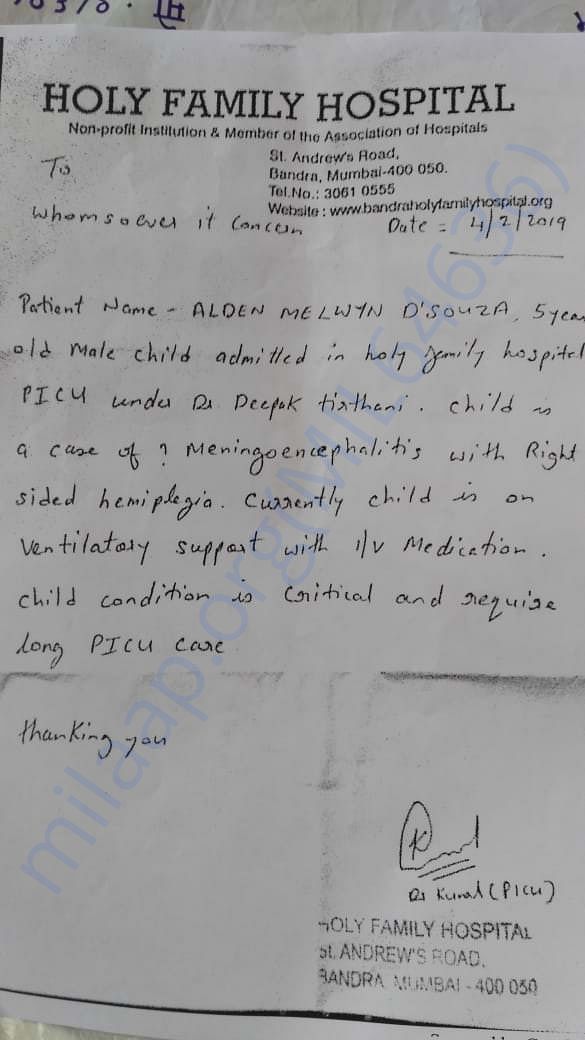 HOLY FAMILY HOSPITAL
Non-profit Institution & Member of the Association of Hospitals
St. Andrew's Road,
Bandra, Mumbai-400 050.
Tel.No.: 3061 0555
Website : www.bandraholyfamilyhospital.org
To
whomsoever it concern
Date = 4/2/2019
Patient Name - ALDEN MELWYN D'SOUZA, 5 year
old male child admitted in holy family hospital
PICU under Dr Deepak tirthani. child is
a case of ? Meningoencephalitis with Right
sided hemiplegia. Currently child is on
Ventilatory support with I/V Medication.
child condition is critical and require
long PICU care
thanking you
Dr Kunal (PICU)
HOLY FAMILY HOSPITAL
St. ANDREW'S ROAD,
BANDRA MUMBAI - 400 050
milaap.org(MIL64636)